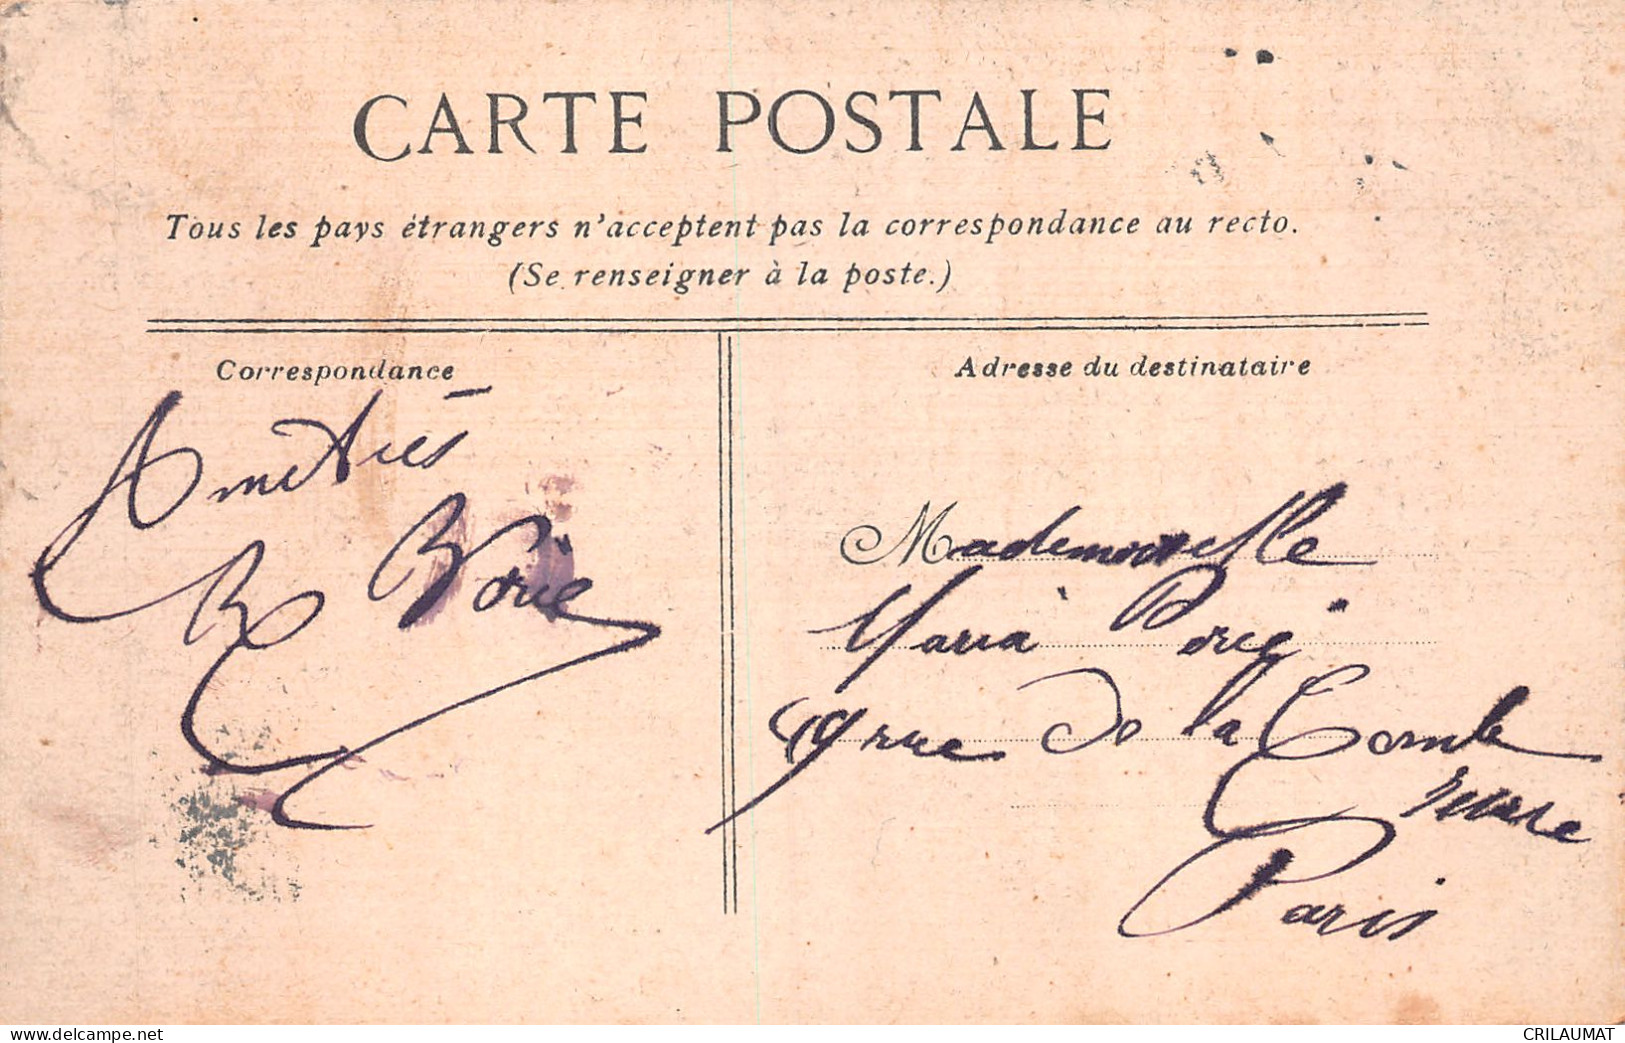 CARTE POSTALE
Tous les pays étrangers n'acceptent pas la correspondance au recto.
(Se renseigner à la poste.)
Correspondance
Amitiés
Adresse du destinataire
Mademoiselle
Maria
rue de la Comète
Paris
https://www.delcampe.net
CRILAUMAT